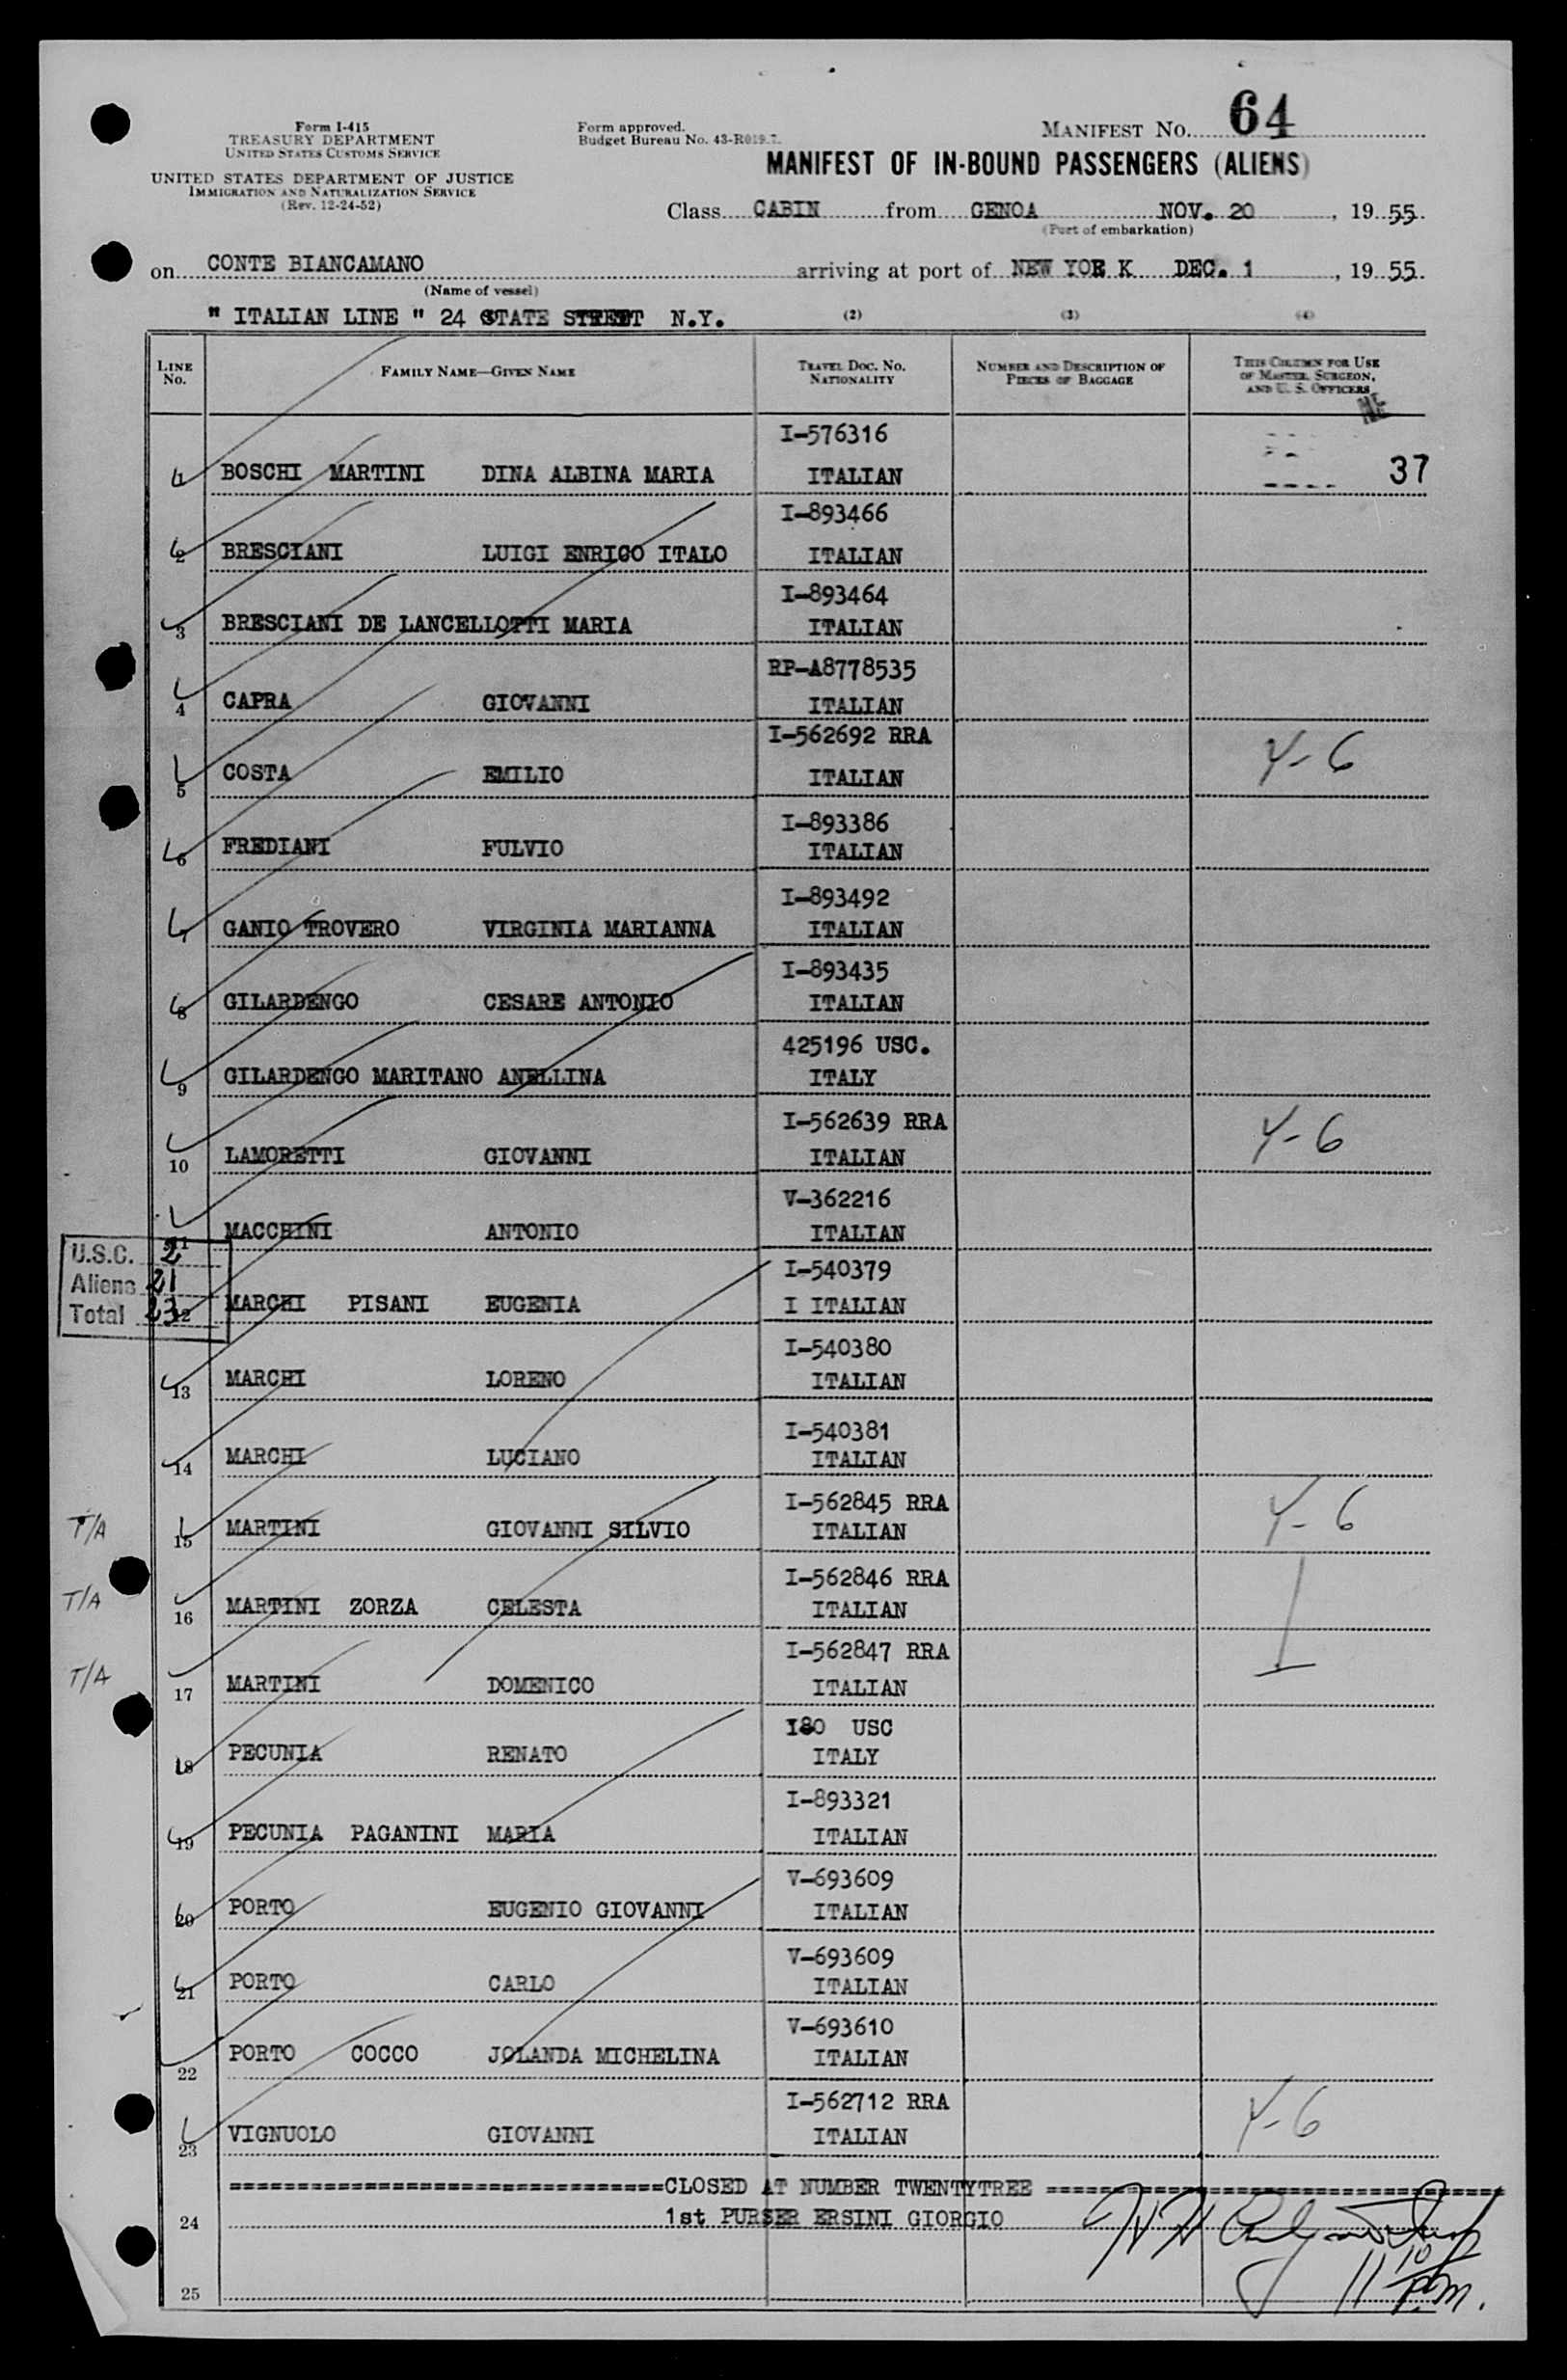 Form I-415
TREASURY DEPARTMENT
UNITED STATES CUSTOMS SERVICE
UNITED STATES DEPARTMENT OF JUSTICE
IMMIGRATION AND NATURALIZATION SERVICE
(Rev. 12-24-52)
Form approved.
Budget Bureau No. 43-R019.
MANIFEST NO. 64
MANIFEST OF IN-BOUND PASSENGERS (ALIENS)
Class CABIN from GENOA NOV. 20, 19 55
(Port of embarkation)
on CONTE BIANCAMANO arriving at port of NEW YOR K DEC. 1, 19 55
(Name of vessel)
" ITALIAN LINE " 24 STATE STREET N.Y. (2) (3) (4)
LINE NO. FAMILY NAME—GIVEN NAME TRAVEL DOC. NO. NATIONALITY NUMBER AND DESCRIPTION OF PIECES OF BAGGAGE THIS COLUMN FOR USE OF MASTER, SURGEON, AND U. S. OFFICERS
I-576316
1 BOSCHI MARTINI DINA ALBINA MARIA ITALIAN 37
I-893466
2 BRESCIANI LUIGI ENRICO ITALO ITALIAN
I-893464
3 BRESCIANI DE LANCELLOTTI MARIA ITALIAN
RP-A8778535
4 CAPRA GIOVANNI ITALIAN
I-562692 RRA
5 COSTA EMILIO ITALIAN Y-6
I-893386
6 FREDIANI FULVIO ITALIAN
I-893492
7 GANIO TROVERO VIRGINIA MARIANNA ITALIAN
I-893435
8 GILARDENGO CESARE ANTONIO ITALIAN
425196 USC.
9 GILARDENGO MARITANO ANELLINA ITALY
I-562639 RRA
10 LAMORETTI GIOVANNI ITALIAN Y-6
V-362216
11 MACCHINI ANTONIO ITALIAN
U.S.C. 2
Aliens 21
Total 23
I-540379
12 MARCHI PISANI EUGENIA I ITALIAN
I-540380
13 MARCHI LORENO ITALIAN
I-540381
14 MARCHI LUCIANO ITALIAN
I-562845 RRA
T/A 15 MARTINI GIOVANNI SILVIO ITALIAN Y-6
I-562846 RRA
T/A 16 MARTINI ZORZA CELESTA ITALIAN
I-562847 RRA
T/A 17 MARTINI DOMENICO ITALIAN
180 USC
18 PECUNIA RENATO ITALY
I-893321
19 PECUNIA PAGANINI MARIA ITALIAN
V-693609
20 PORTO EUGENIO GIOVANNI ITALIAN
V-693609
21 PORTO CARLO ITALIAN
V-693610
22 PORTO COCCO JOLANDA MICHELINA ITALIAN
I-562712 RRA
23 VIGNUOLO GIOVANNI ITALIAN Y-6
================================CLOSED AT NUMBER TWENTYTREE ==================================
24 1st PURSER ERSINI GIORGIO
11 10 P.M.
25